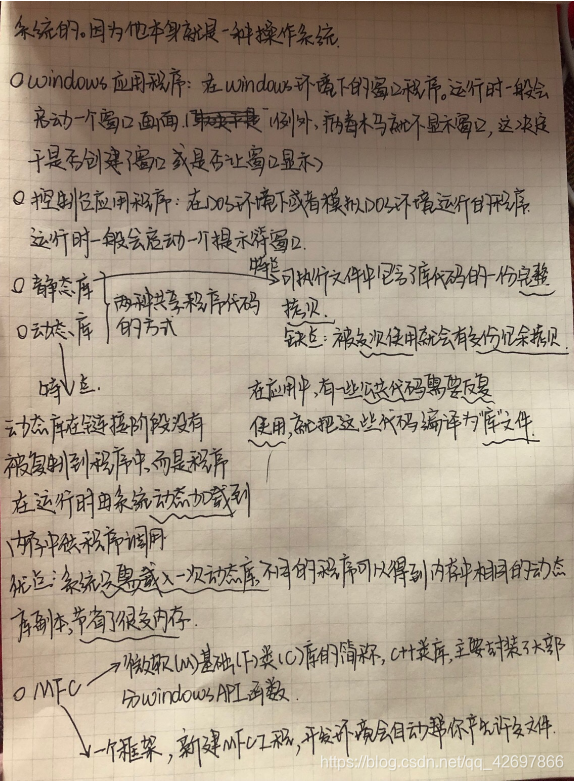 系统的。因为他本身就是一种操作系统.
windows应用程序：在windows环境下的窗口程序。运行时一般会
启动一个窗口画面.(例外，病毒木马就不显示窗口，这决定
于是否创建了窗口或是否让窗口显示)
控制台应用程序：在DOS环境下或者模拟DOS环境运行的程序.
运行时一般会启动一个提示符窗口.
静态库
动态库
两种共享程序代码
的方式
特点
可执行文件中包含了库代码的一份完整
拷贝.
缺点：被多次使用就会有多份冗余拷贝.
特点.
动态库在链接阶段没有
被复制到程序中,而是程序
在运行时由系统动态加载到
内存中供程序调用
在应用中,有一些公共代码需要反复
使用,就把这些代码编译为"库"文件.
优点：系统只需载入一次动态库,不同的程序可以得到内存中相同的动态
库副本,节省了很多内存.
MFC
微软(M)基础(F)类(C)库的简称，C++类库，主要封装了大部
分windowsAPI函数.
一个框架，新建MFC工程，开发环境会自动帮你产生许多文件.
https://blog.csdn.net/qq_42697866